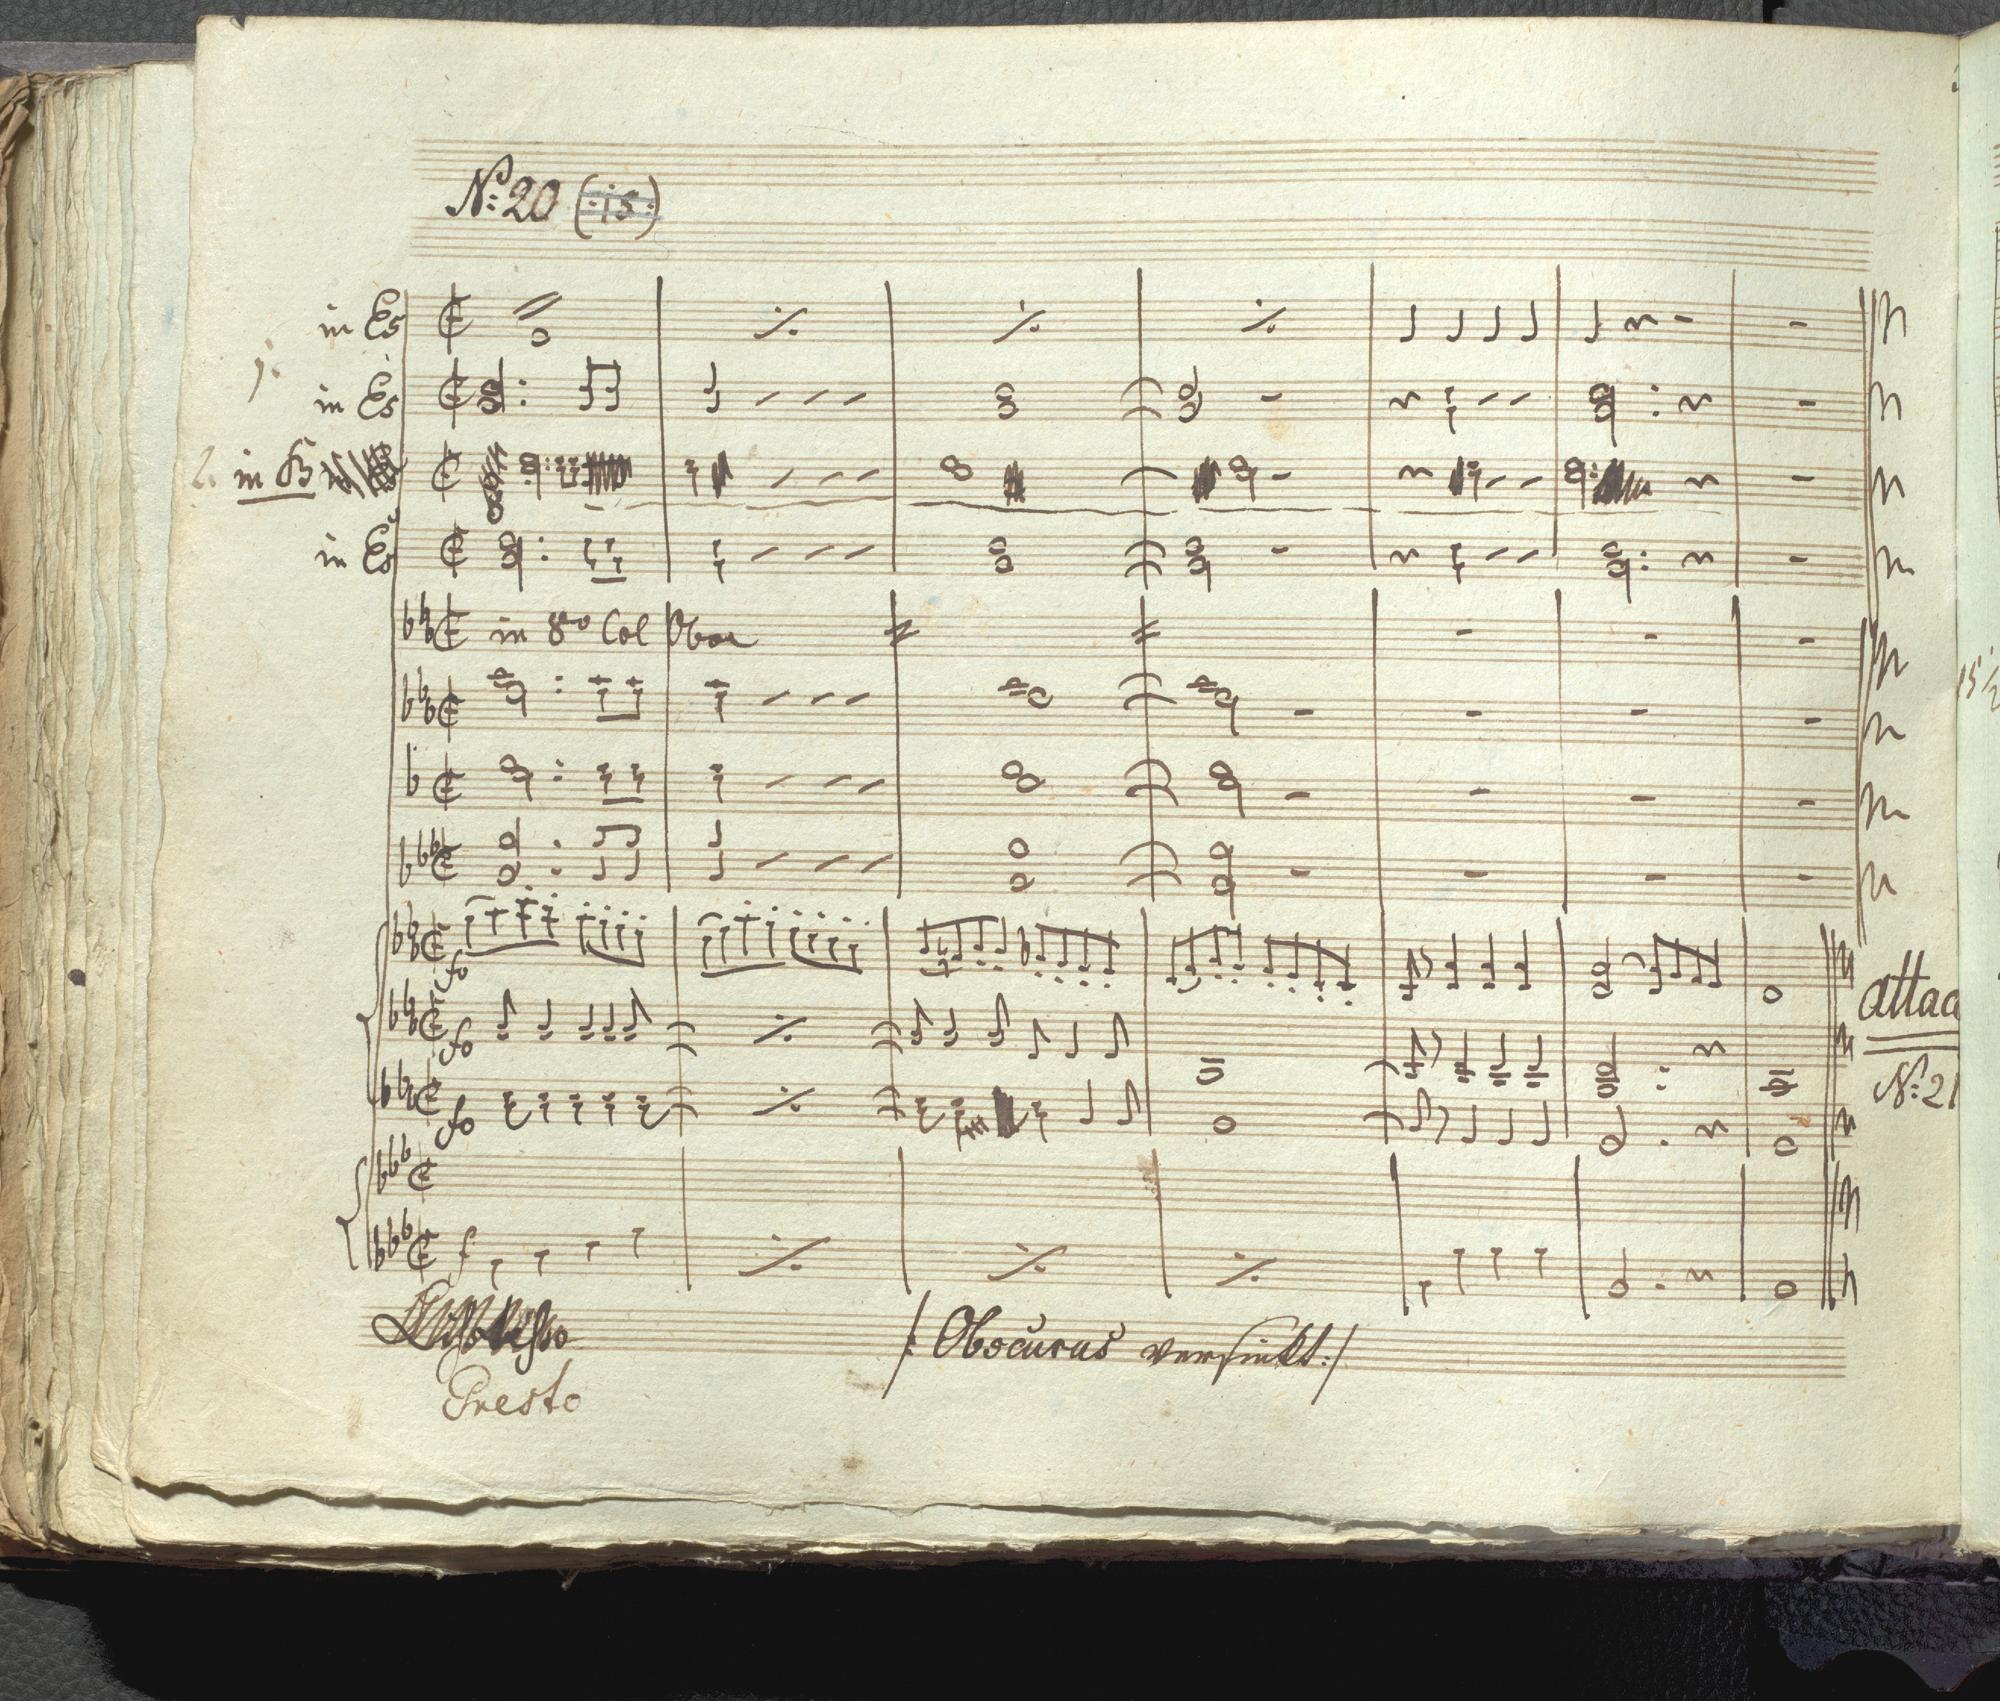 No: 20 (:is:)
in Es
in Es
2. in B
in Es
in 8vo Col Oboe
fo
fo
fo
f
attac
No: 21
/: Obscurus versinkt :/
Presto